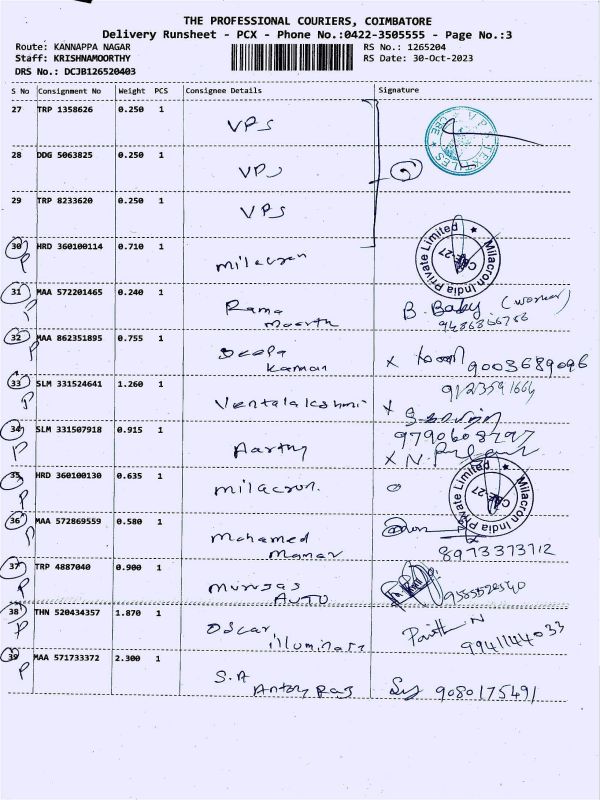 THE PROFESSIONAL COURIERS, COIMBATORE
Delivery Runsheet - PCX - Phone No.:0422-3505555 - Page No.:3
Route: KANNAPPA NAGAR
RS No.: 1265204
Staff: KRISHNAMOORTHY
RS Date: 30-Oct-2023
DRS No.: DCJB126520403
S No Consignment No Weight PCS Consignee Details Signature
27 TRP 1358626 0.250 1
VPS
28 DDG 5063825 0.250 1
VPS
29 TRP 8233620 0.250 1
VPS
30 HRD 360100114 0.710 1
P milacron
Milacron India Private Limited
31 MAA 572201465 0.240 1
P Rama
Moorth
B. Baby (worker)
9486866786
32 MAA 862351895 0.755 1
P Deepa
Kaman
x 9003689096
33 SLM 331524641 1.260 1
9123591664
P Ventalakshmi x
34 SLM 331507918 0.915 1
9790608797
P Aarthy
x N.
35 HRD 360100130 0.635 1
P milacron.
Milacron India Private Limited
36 MAA 572869559 0.580 1
P Mohamed
Mamar
8973373712
37 TRP 4887040 0.900 1
P murugas
AUTO
9585520540
38 THN 520434357 1.870 1
P Oscar
illuminati
N
9941144033
39 MAA 571733372 2.300 1
P S.A
Antony Raj
9080175491